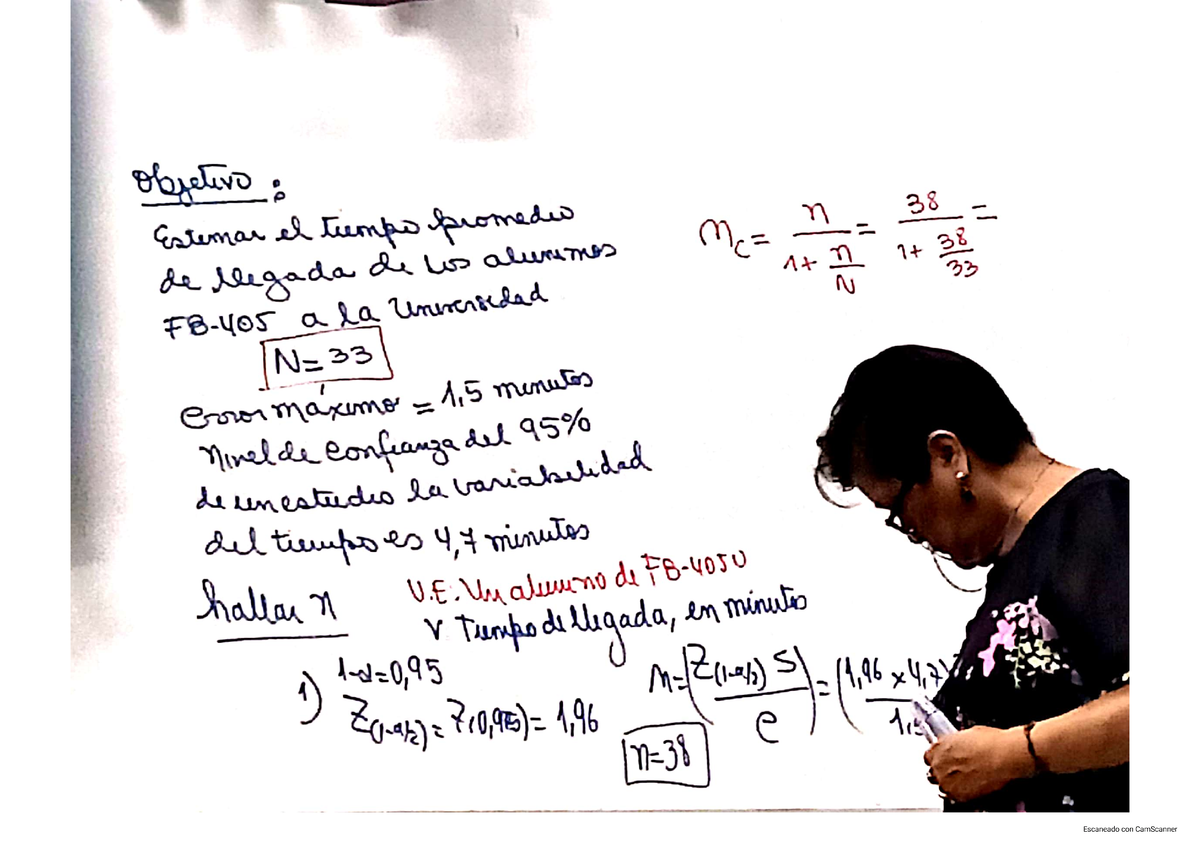 Objetivo :
Estimar el tiempo promedio
de llegada de los alumnos
FB-405 a la Universidad
N= 33
error máximo = 1,5 minutos
Nivel de confianza del 95%
de un estudio la variabilidad
del tiempo es 4,7 minutos
hallar n
U.E. Un alumno de FB-405U
V Tiempo de llegada, en minutos
1) 1-α=0,95
Z(1-α/2) = Z(0,975) = 1,96
n=(Z(1-α/2) S / e) = (1,96 x 4,7
n=38
nc = n / 1+ n/N = 38 / 1+ 38/33 =
Escaneado con CamScanner